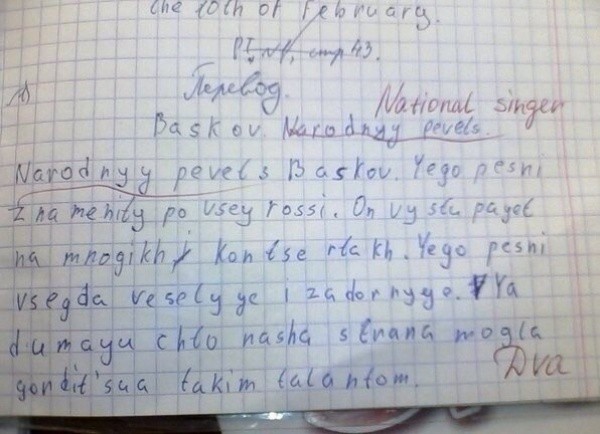 the 10th of February.
PI, №1, стр 43.
Перевод.
National singer
Baskov. Narodnyy pevets.
Narodnyy pevets Baskov. Yego pesni
znamenity po vsey rossi. On vystupayet
na mnogikh kontsertakh. Yego pesni
vsegda veselyye i zadornyye. Ya
dumayu chto nasha strana mogla
gordit'sua takim talantom.
Dva